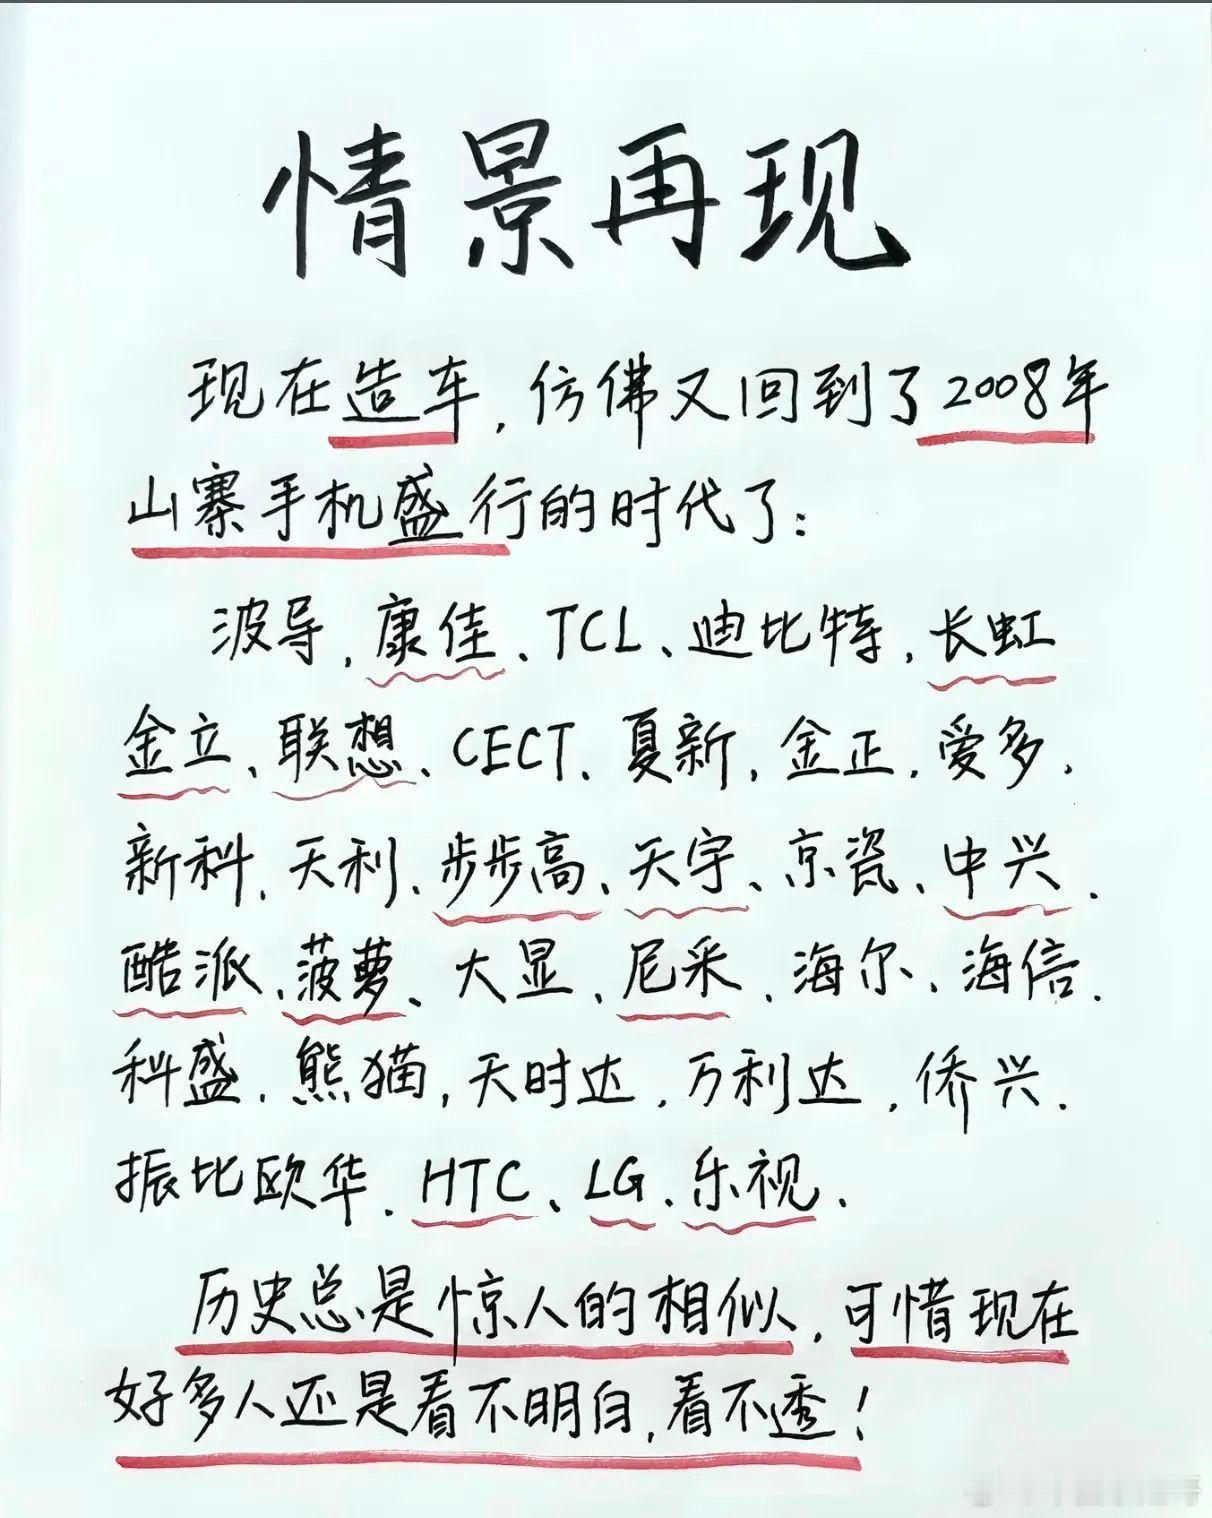 情景再现
现在造车,仿佛又回到了2008年
山寨手机盛行的时代了:
波导,康佳、TCL、迪比特,长虹
金立、联想、CECT、夏新,金正,爱多,
新科,天利、步步高、天宇、京瓷、中兴、
酷派、菠萝、大显、尼采、海尔、海信、
科盛,熊猫,天时达,万利达,侨兴、
振比欧华、HTC、LG、乐视、
历史总是惊人的相似,可惜现在
好多人还是看不明白,看不透!